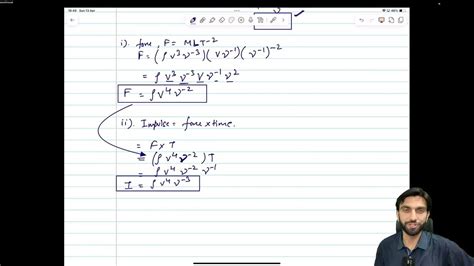 i). force, F = MLT-2
F = (ρ v³ ν-³)(v ν-¹)(ν-¹)-²
= ρ v³ ν-³ v ν-¹ ν²
F = ρ v⁴ ν-²
ii). Impulse = force x time.
= F x T
= (ρ v⁴ ν-²) T
= ρ v⁴ ν-² ν-¹
I = ρ v⁴ ν-³